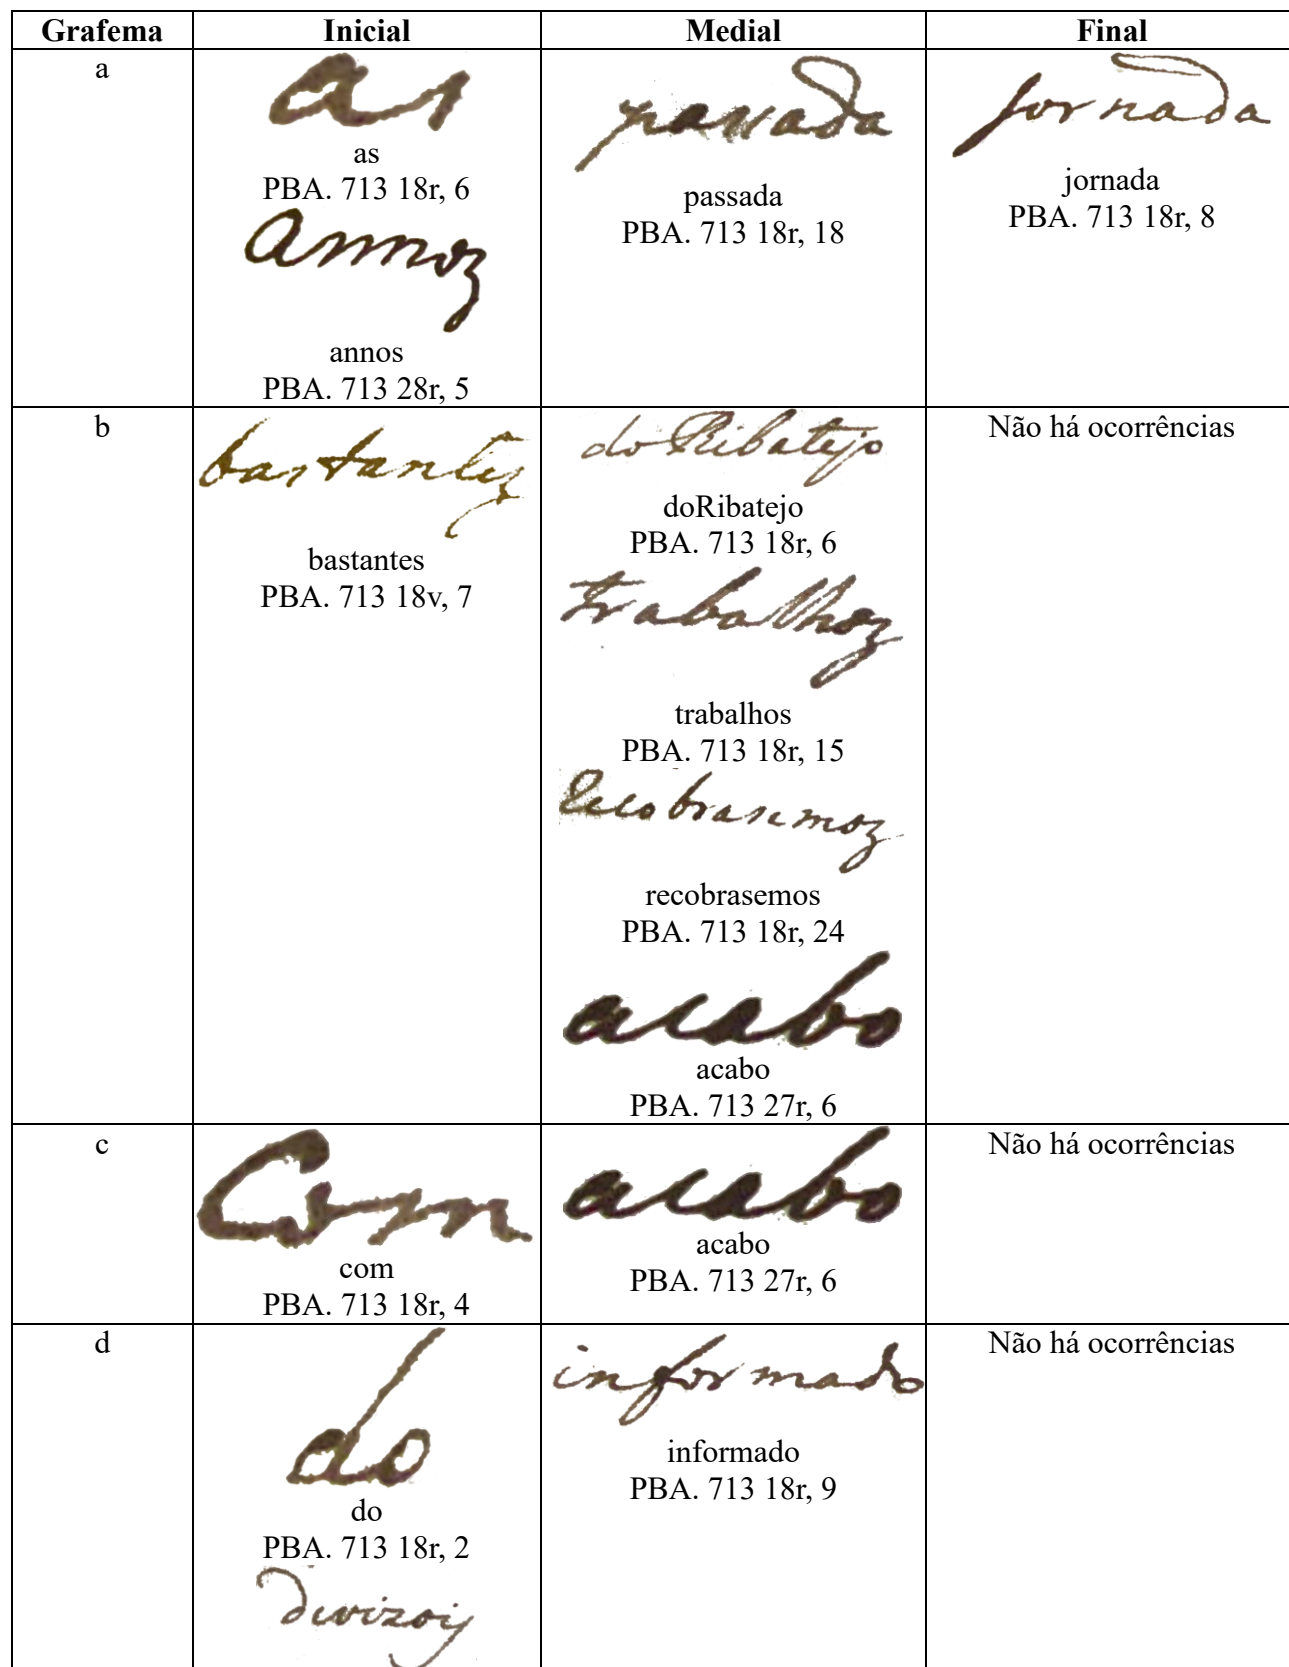 Grafema Inicial Medial Final
a
as
as
PBA. 713 18r, 6
annoz
annos
PBA. 713 28r, 5
passada
passada
PBA. 713 18r, 18
jornada
jornada
PBA. 713 18r, 8
b
bastantes
bastantes
PBA. 713 18v, 7
doRibatejo
doRibatejo
PBA. 713 18r, 6
trabalhoz
trabalhos
PBA. 713 18r, 15
recobrasemoz
recobrasemos
PBA. 713 18r, 24
acabo
acabo
PBA. 713 27r, 6
Não há ocorrências
c
Com
com
PBA. 713 18r, 4
acabo
acabo
PBA. 713 27r, 6
Não há ocorrências
d
do
do
PBA. 713 18r, 2
divizois
informado
informado
PBA. 713 18r, 9
Não há ocorrências